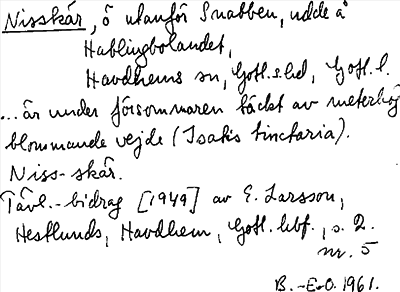 Nisskär, ö utanför Snabben, udde å
Hablingbolandet,
Havdhems sn, Gotl. s. hd, Gotl. l.
... är under försommaren täckt av meterhög
blommande vejde (Isatis tinctoria).
Niss-skär.
Tävl.-bidrag [1949] av E. Larsson,
Hestlunds, Havdhem, Gotl. hbf., s. 2.
nr. 5
B.-E.O. 1961.